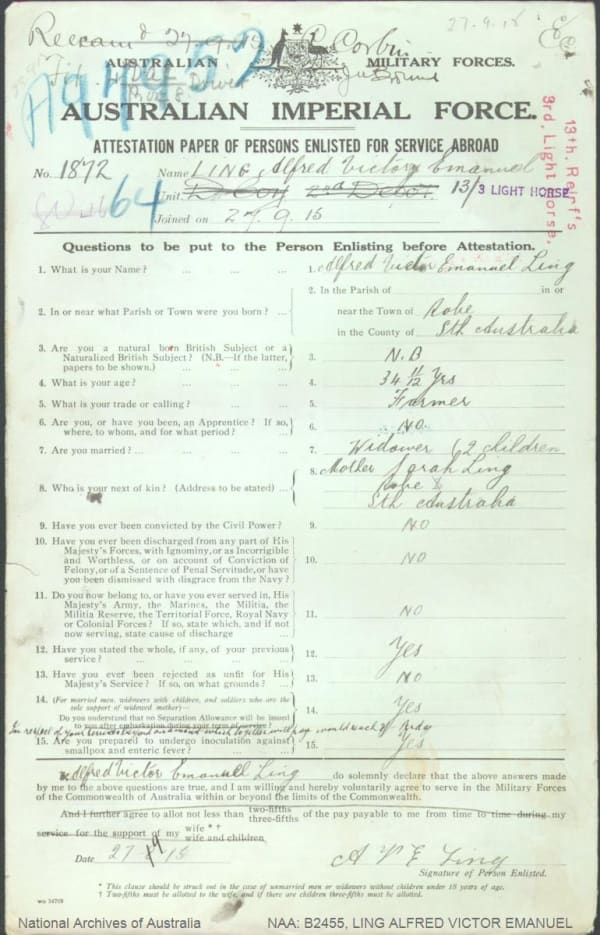 27.9.15
AUSTRALIAN MILITARY FORCES.
AUSTRALIAN IMPERIAL FORCE.
ATTESTATION PAPER OF PERSONS ENLISTED FOR SERVICE ABROAD
No. 1872 Name LING, Alfred Victor Emanuel
Unit 2nd Depot 13/3 LIGHT HORSE
64
Joined on 27.9.15
13th. Reinf's
3rd. Light Horse.
Questions to be put to the Person Enlisting before Attestation.
1. What is your Name? ... ... ... 1. Alfred Victor Emanuel Ling
2. In or near what Parish or Town were you born? ... 2. In the Parish of in or
near the Town of Robe
in the County of Sth Australia
3. Are you a natural born British Subject or a
Naturalized British Subject? (N.B.—If the latter,
papers to be shown.) ... ... ... 3. N.B
4. What is your age? ... ... ... 4. 34 11/12 Yrs
5. What is your trade or calling? ... ... 5. Farmer
6. Are you, or have you been, an Apprentice? If so,
where, to whom, and for what period? ... 6. NO
7. Are you married? ... ... ... 7. Widower (2 children
8. Who is your next of kin? (Address to be stated) ... 8. Mother Sarah Ling
Robe
Sth Australia
9. Have you ever been convicted by the Civil Power? 9. NO
10. Have you ever been discharged from any part of His
Majesty's Forces, with Ignominy, or as Incorrigible
and Worthless, or on account of Conviction of
Felony, or of a Sentence of Penal Servitude, or have
you been dismissed with disgrace from the Navy? 10. NO
11. Do you now belong to, or have you ever served in, His
Majesty's Army, the Marines, the Militia, the
Militia Reserve, the Territorial Force, Royal Navy
or Colonial Forces? If so, state which, and if not
now serving, state cause of discharge ... 11. NO
12. Have you stated the whole, if any, of your previous
service? ... ... ... 12. Yes
13. Have you ever been rejected as unfit for His
Majesty's Service? If so, on what grounds? ... 13. NO
14. (For married men, widowers with children, and soldiers who are the
sole support of widowed mother)—
Do you understand that no Separation Allowance will be issued
to you after embarkation during your term of service? 14. Yes
15. Are you prepared to undergo inoculation against
smallpox and enteric fever? ... 15. Yes
Alfred Victor Emanuel Ling do solemnly declare that the above answers made
by me to the above questions are true, and I am willing and hereby voluntarily agree to serve in the Military Forces
of the Commonwealth of Australia within or beyond the limits of the Commonwealth.
And I further agree to allot not less than two-fifths three-fifths of the pay payable to me from time to time during my
service for the support of my wife *† wife and children
Date 27 9 15 A V E Ling
Signature of Person Enlisted.
* This clause should be struck out in the case of unmarried men or widowers without children under 18 years of age.
† Two-fifths must be allotted to the wife, and if there are children three-fifths must be allotted.
National Archives of Australia NAA: B2455, LING ALFRED VICTOR EMANUEL